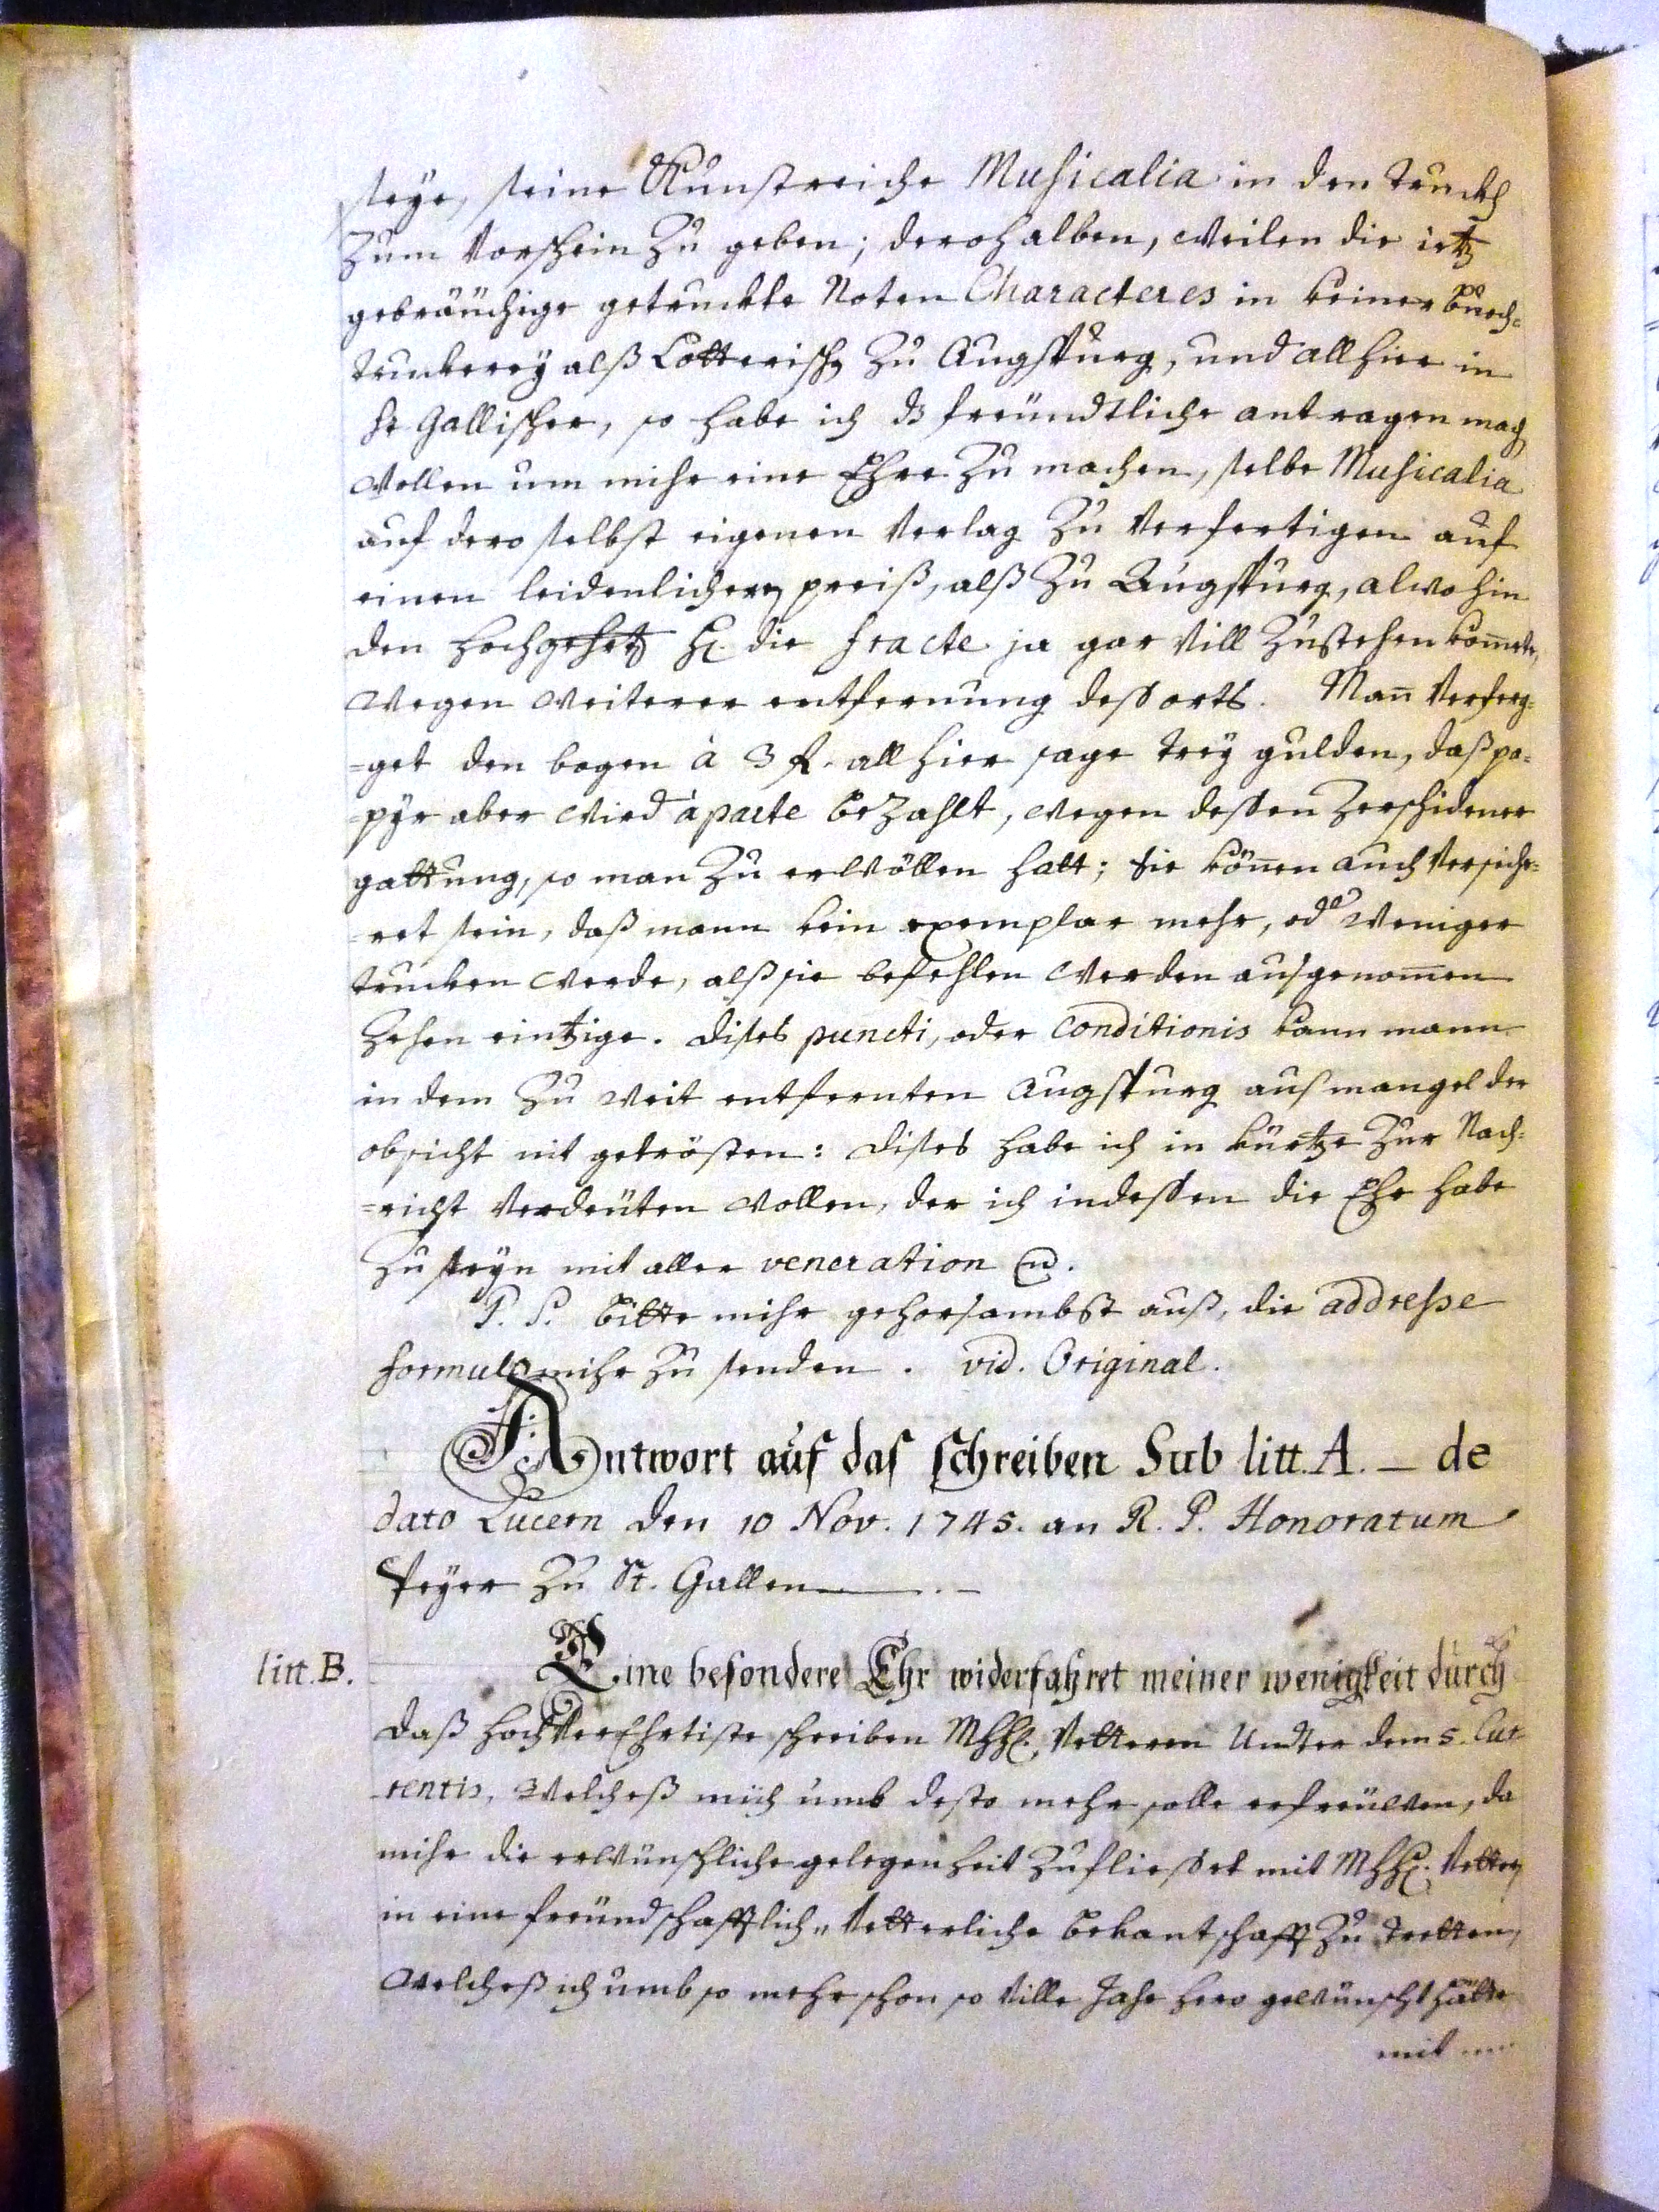 seye, seine Kunstreiche Musicalia in den Truckh
zum Vorschein zu geben; derohalben, weilen die ietz
gebräüchige getruckte Noten Characteres in keiner Buoch=
truckerey alß Lotterisch zu Augspurg, und allhier in
St Gallischer, so habe ich dz freündtliche antragen mach
wollen um mihr eine Ehre zu machen, selbe Musicalia
auf dero selbst eigenen Verlag zu Verfertigen auf
einen leidenlichern preiß, alß zu Augspurg, alwohin
den hochgehrt H. die fracte ja gar Vill zustehen kom̅ete,
wegen weiterer entfernung des orts. Man̅ Verferg=
=get den bogen à 3 fl. all hier sage trey gulden, daß pa=
=pyr aber wird àparte bezahlt, wegen dessen zerschidener
gattung, so man zu erwöllen hatt; Sie kön̅en auch Versiche=
=ret sein, daß mann kein exemplar mehr, oder weniger
trucken werde, alß sie befehlen werden ausgenom̅en
zehen eintzige. dises puncti, oder Conditionis kann mann
in dem zu weit entfernten Augspurg aus mangel der
obsicht nit getrösten: dises habe ich in kürtze zur Nach=
=richt Verdeüten wollen, der ich indessen die Ehr habe
zu seyn mit aller veneration
P. S. bitte mihr gehorsambst auß, die addresse
formul mihr zu senden. vid. Original.
Antwort auf das schreiben Sub litt. A. – de
dato Lucern den 10 Nov. 1745. an R. P. Honoratum
Peyer zu St. Gallen
litt. B.
Eine besondere Ehr widerfahret meiner wenigkeit durch
daß hochVerEhrtiste schreiben MhH. Vetteren Undter dem 5. Cur
rentis, welcheß mich umb desto mehr solle erfreüwen, da
mihr die erwünschliche gelegenheit zufliesset mit MhH. Vetter
in eine freündschafftlich= Vetterliche bekantschafft zu tretten,
welcheß ich umb so mehr schon so Ville Jahr hero gewünscht hätte
mit